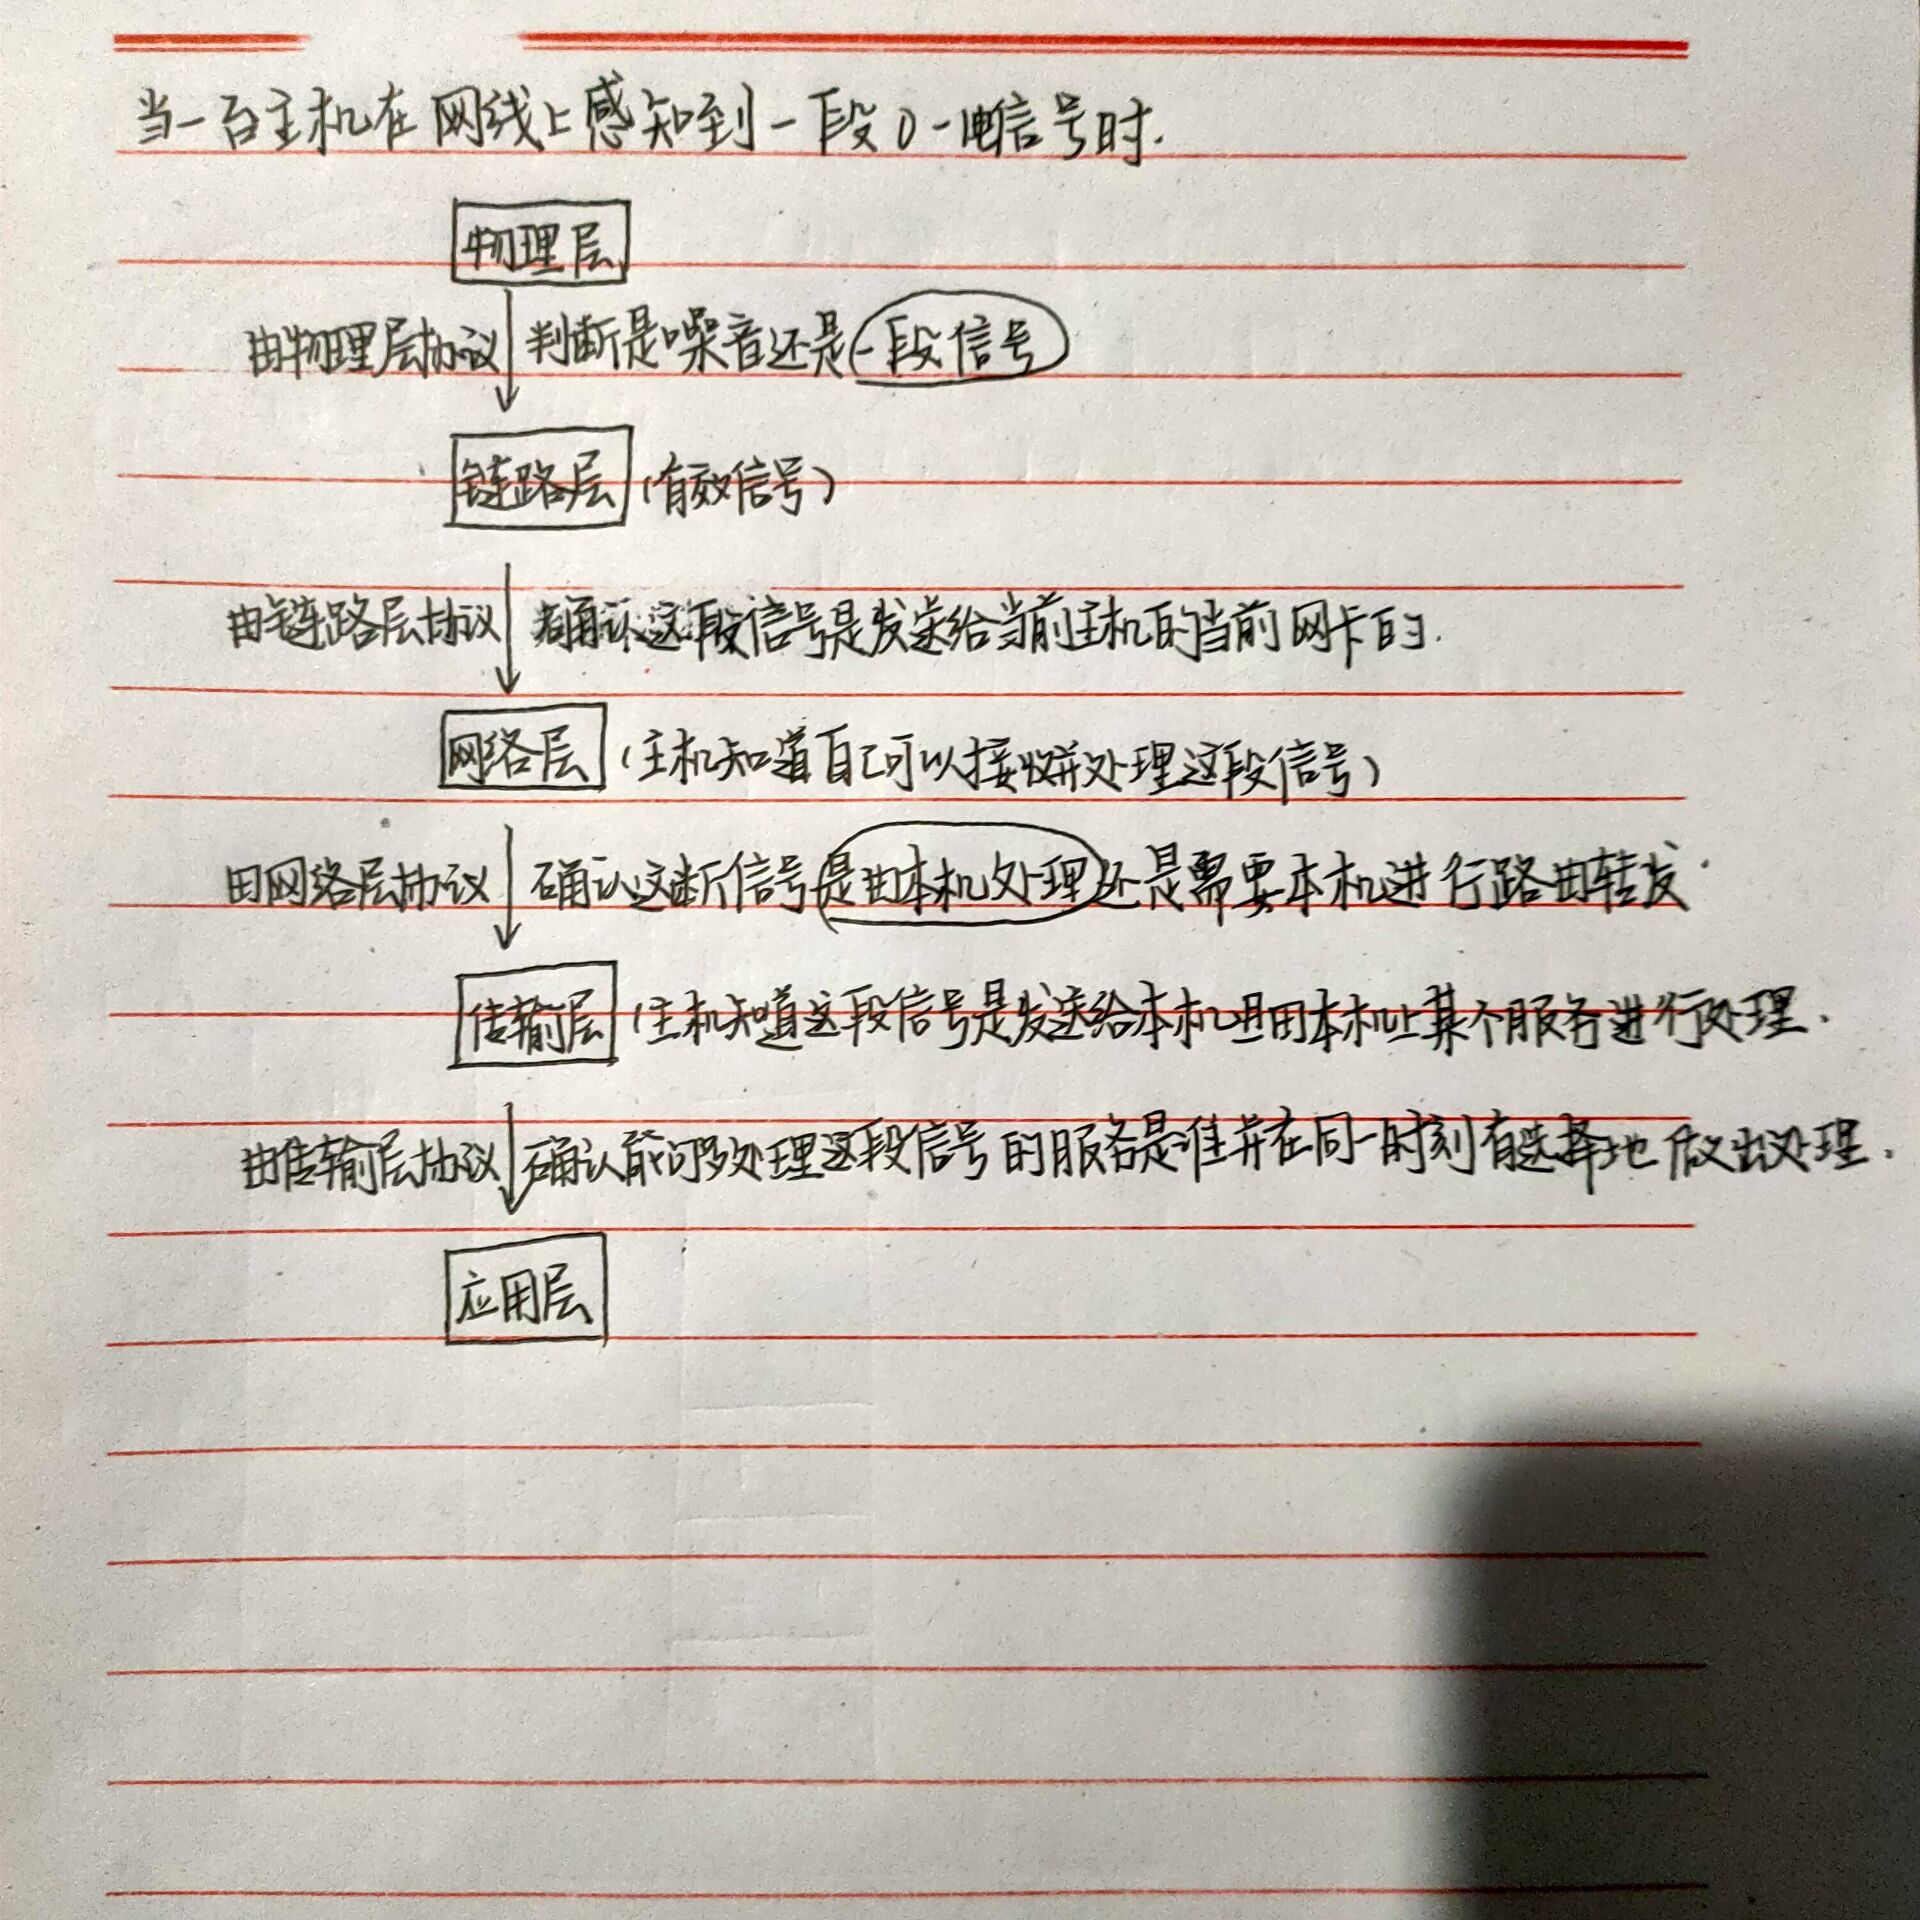 当一台主机在网线上感知到一段0-1电信号时.
物理层
由物理层协议 判断是噪音还是一段信号
链路层 (有效信号)
由链路层协议 确认这段信号是发送给当前主机的当前网卡的.
网络层 (主机知道自己可以接收并处理这段信号)
由网络层协议 确认这断信号是由本机处理还是需要本机进行路由转发.
传输层 (主机知道这段信号是发送给本机且由本机上某个服务进行处理.
由传输层协议 确认能够处理这段信号的服务是谁并在同一时刻有选择地做出处理.
应用层